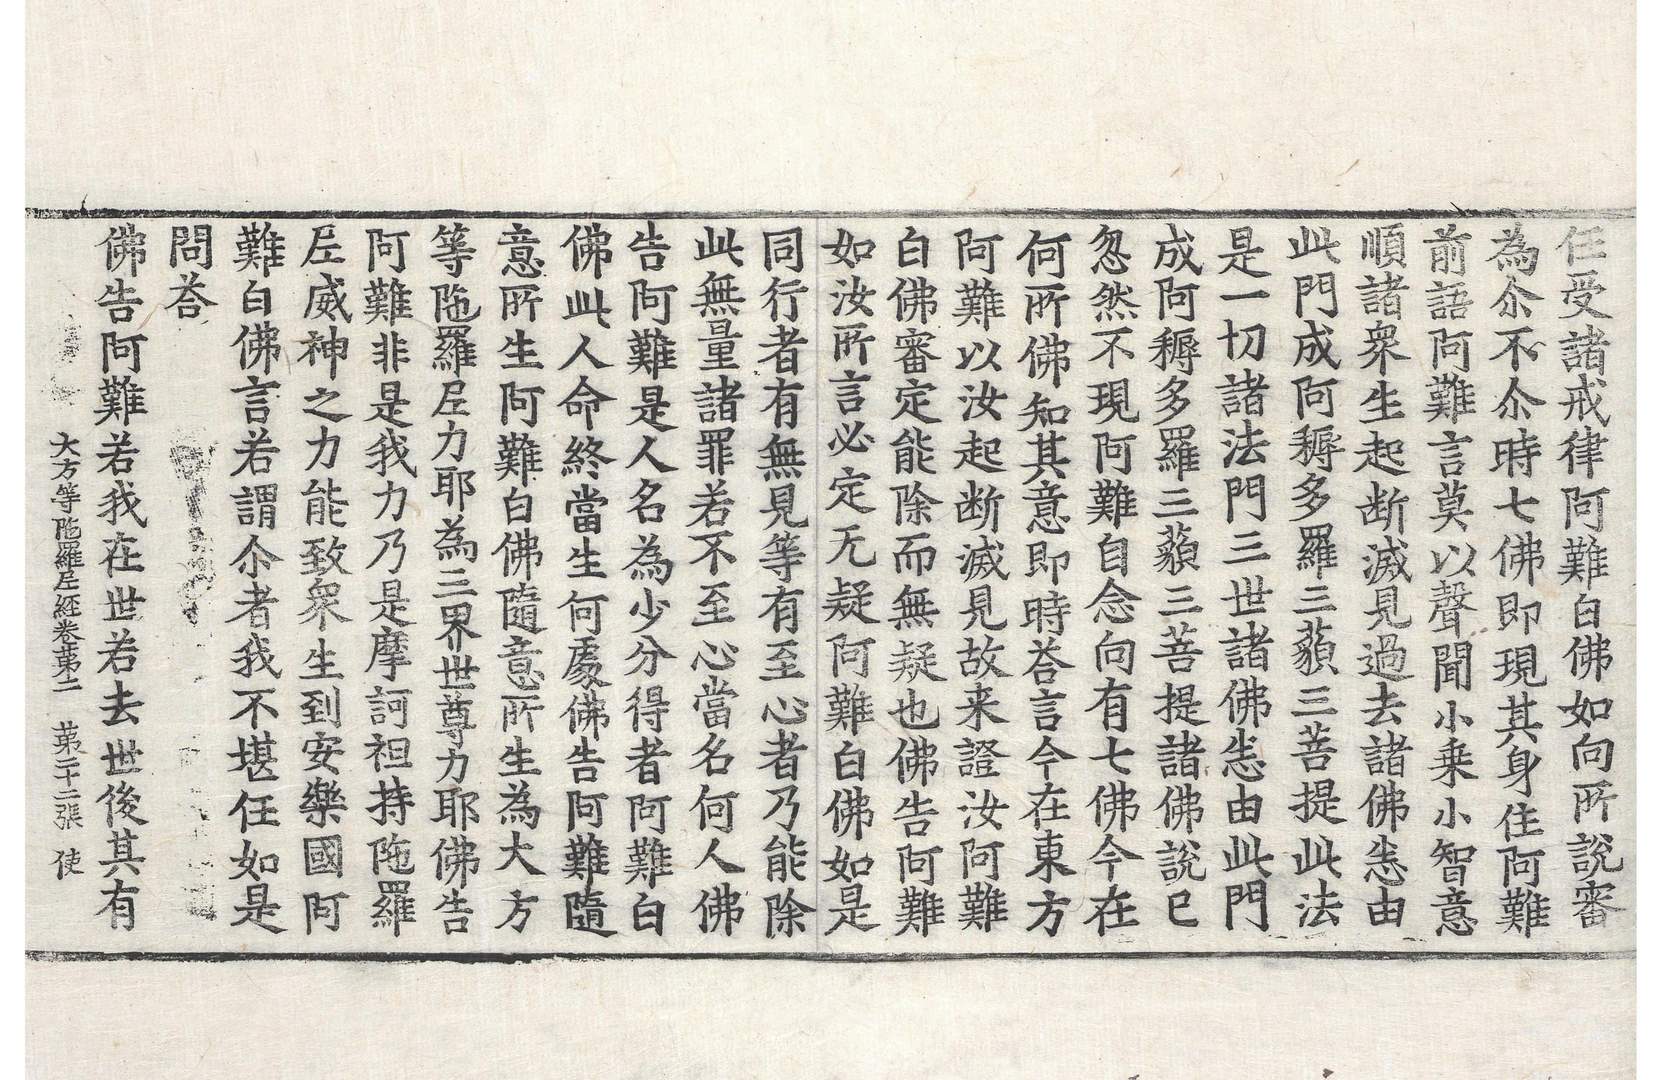 任受諸戒律阿難白佛如向所說審
為尒不尒時七佛即現其身住阿難
前語阿難言莫以聲聞小乗小智意
順諸衆生起断滅見過去諸佛悉由
此門成阿耨多羅三藐三菩提此法
是一切諸法門三世諸佛悉由此門
成阿耨多羅三藐三菩提諸佛說已
忽然不現阿難自念向有七佛今在
何所佛知其意即時荅言今在東方
阿難以汝起断滅見故来證汝阿難
白佛審定能除而無疑也佛告阿難
如汝所言必定无疑阿難白佛如是
同行者有無見等有至心者乃能除
此無量諸罪若不至心當名何人佛
告阿難是人名為少分得者阿難白
佛此人命終當生何處佛告阿難隨
意所生阿難白佛隨意所生為大方
等陁羅尼力耶為三界世尊力耶佛告
阿難非是我力乃是摩訶袒持陁羅
尼威神之力能致衆生到安樂國阿
難白佛言若謂尒者我不堪任如是
問荅
佛告阿難若我在世若去世後其有
大方等陁羅尼經卷第二 第二十二張 使